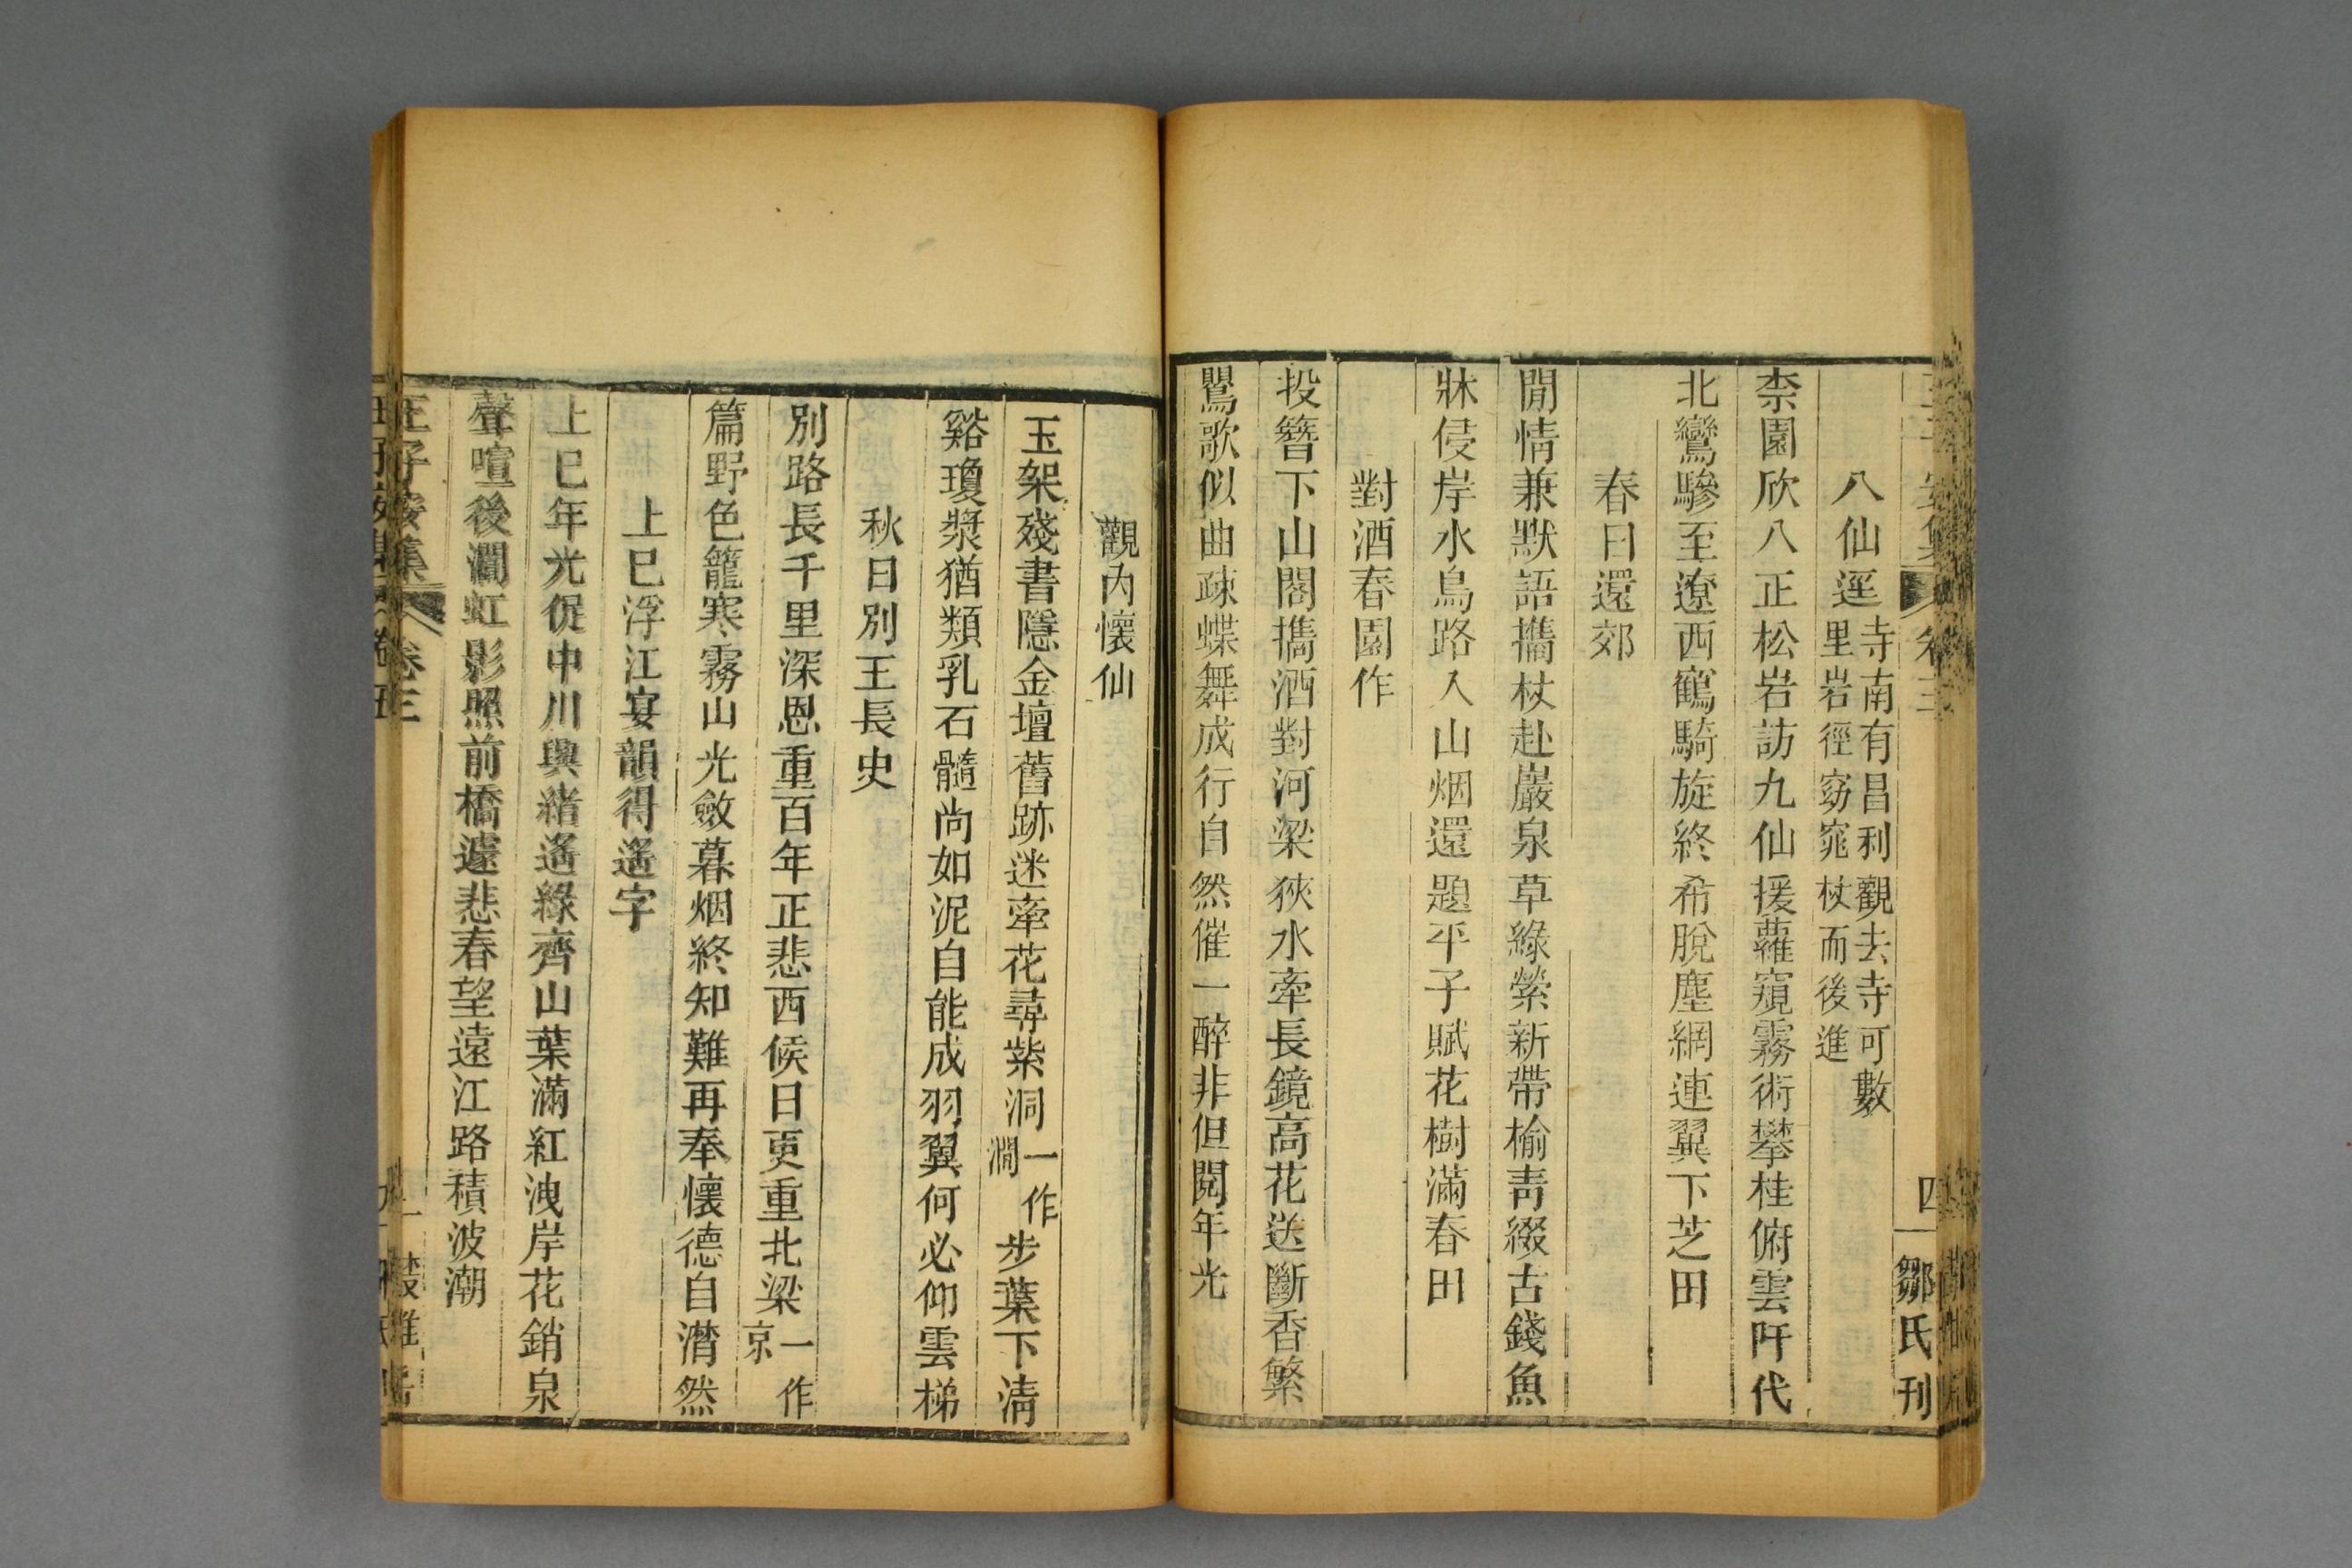 八仙逕寺南有昌利觀去寺可數里岩徑窈窕杖而後進
柰園欣八正松岩訪九仙援蘿窺霧術攀桂俯雲阡代
北鸞驂至遼西鶴騎旋終希脫塵網連翼下芝田
春日還郊
閒情兼默語攜杖赴巖泉草綠縈新帶榆靑綴古錢魚
牀侵岸水鳥路入山烟還題平子賦花樹滿春田
對酒春園作
投簪下山閣攜酒對河梁狹水牽長鏡高花送斷香繁
鸎歌似曲疎蝶舞成行自然催一醉非但閱年光
四
鄒氏刊
觀內懷仙
玉架殘書隱金壇舊跡迷牽花尋紫洞一作澗步葉下淸
谿瓊漿猶類乳石髓尚如泥自能成羽翼何必仰雲梯
秋日別王長史
別路長千里深恩重百年正悲西候日更重北梁一作京
篇野色籠寒霧山光斂暮烟終知難再奉懷德自潸然
上巳浮江宴韻得遙字
上巳年光促中川興緒遙綠齊山葉滿紅洩岸花銷泉
聲喧後澗虹影照前橋遽悲春望遠江路積波潮
王子安集
卷三